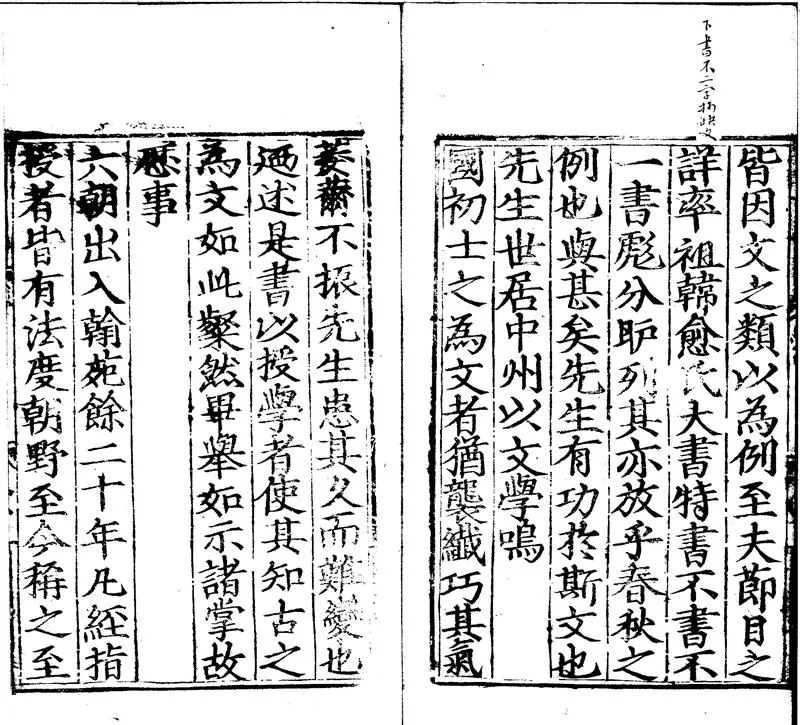 下書不二字
皆因文之類以為例至夫節目之
詳率祖韓愈氏大書特書不書不
一書彪分昈列其亦放乎春秋之
例也與甚矣先生有功扵斯文也
先生世居中州以文學鳴
國初士之為文者猶襲纖巧其氣
萎薾不振先生患其久而難變也
迺述是書以授學者使其知古之
為文如此粲然畢舉如示諸掌故
歷事
六朝出入翰苑餘二十年凡經指
授者皆有法度朝野至今稱之至